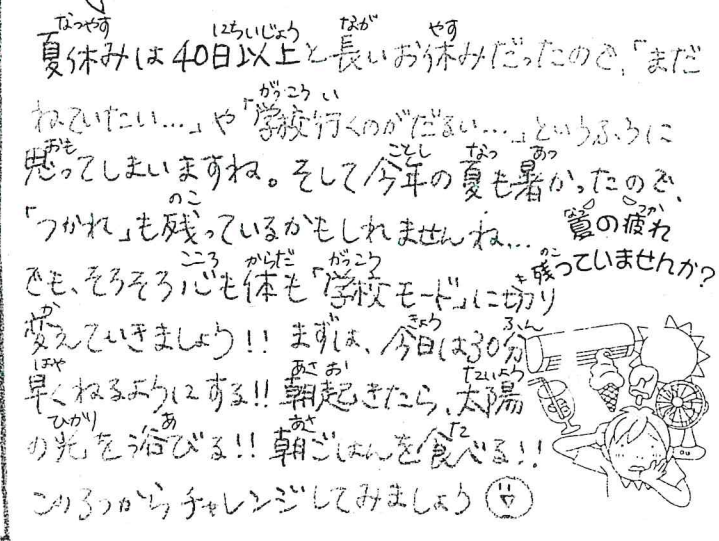 夏休みは40日以上と長いお休みだったので、「まだ
ねていたい…」や「学校行くのがだるい…」というふうに
思ってしまいますね。そして今年の夏も暑かったので、
「つかれ」も残っているかもしれませんね…
夏の疲れ
残っていませんか？
でも、そろそろ心も体も「学校モード」に切り
変えていきましょう!! まずは、今日は30分
早くねるようにする!! 朝起きたら、太陽
の光を浴びる!! 朝ごはんを食べる!!
この3つからチャレンジしてみましょう